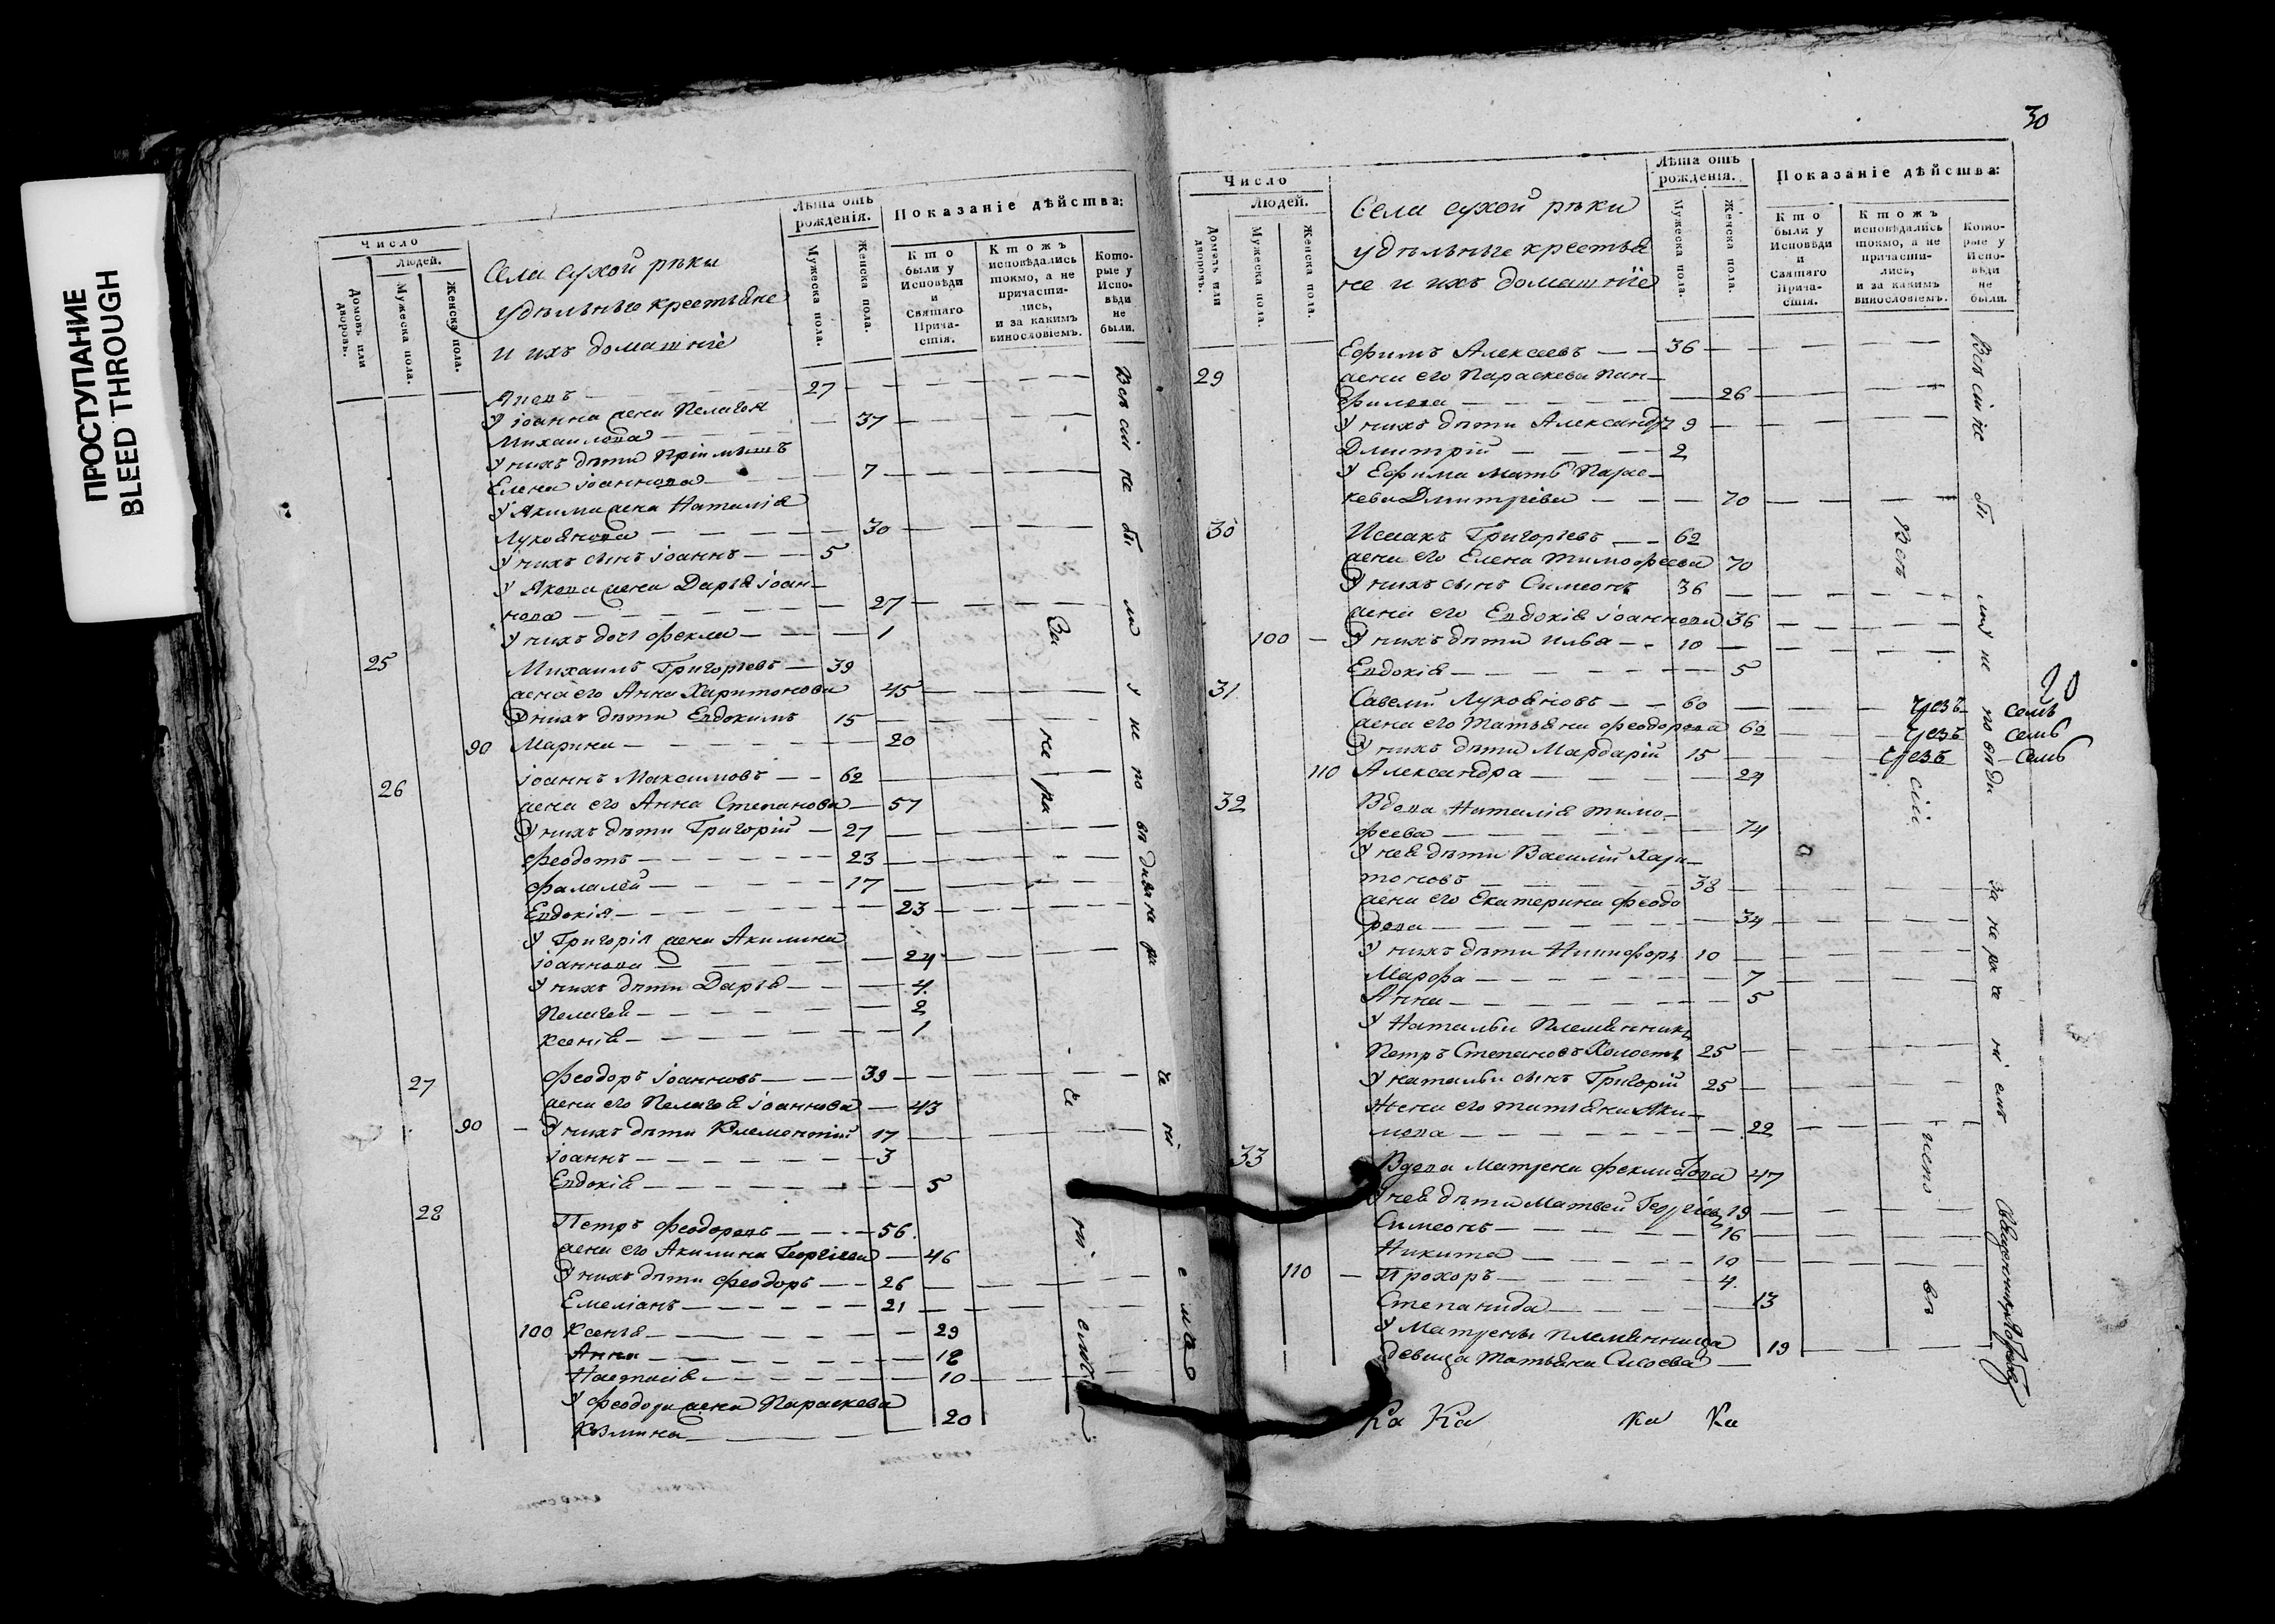 ПРОСТУПАНИЕ
BLEED THROUGH
Число
Людей.
Домовъ или дворовъ.
Мужеска пола.
Женска пола.
Села сухой рѣки
удѣльные крестьяне
и ихъ домашніе
Лѣта отъ рожденія.
Мужеска пола.
Женска пола.
Показаніе дѣйства:
Кто были у Исповѣди и Святаго Прича-стія.
Ктожъ исповѣдались токмо, а не причасти-лись, и за какимъ винословіемъ.
Кото-рые у Испо-вѣди не были.
27
У іоанна жена Пелагея
Михаилова 37
У нихъ дѣти Пріимышъ
Елена іоаннова 7
У Якима жена Наталія
Лукоянова 30
У нихъ сынъ іоаннъ 5
У Якова жена Дарья іоан-
нова 27
У нихъ дочь Фекла 1
25 Михаилъ Григорьевъ 39
жена его Анна Харитонова 45
У нихъ дѣти Евдокимъ 15
90 Марина 20
26 іоаннъ Максимовъ 62
жена его Анна Степанова 57
У нихъ дѣти Григорій 27
Феодотъ 23
Фалалей 17
Евдокія 23
У Григорія жена Акилина
іоаннова 24
У нихъ дѣти Дарья 4
Пелагея 2
Ксенія 1
27 Феодоръ іоанновъ 39
жена его Пелагея іоаннова 43
90 У нихъ дѣти Климентій 17
іоаннъ 3
Евдокія 5
28 Петръ Феодоровъ 56
жена его Акилина Георгіева 46
У нихъ дѣти Феодоръ 26
Емеліанъ 21
100 Ксенья 29
Анна 18
Настасія 10
У Феодора жена Параскева
Козмина 20
За не ра че ні емъ
30
Число
Людей.
Домовъ или дворовъ.
Мужеска пола.
Женска пола.
Села сухой рѣки
удѣльные крестья
не и ихъ домашніе
Лѣта отъ рожденія.
Мужеска пола.
Женска пола.
Показаніе дѣйства:
Кто были у Исповѣди и Святаго Прича-стія.
Ктожъ исповѣдались токмо, а не причасти-лись, и за какимъ винословіемъ.
Кото-рые у Испо-вѣди не были.
29 Ефимъ Алексеевъ 36
жена его Параскева Пан-
филова 26
У нихъ дѣти Александръ 9
Дмитрій 2
У Ефима мать Парас-
кева Дмитріева 70
30 Исаакъ Григорьевъ 62
жена его Елена Тимофеева 70
У нихъ сынъ Симеонъ 36
жена его Евдокія іоаннова 36
100 У нихъ дѣти Илья 10
Евдокія 5
20
31 Савелій Лукояновъ 60 чрезъ семь
жена его Татьяна Феодорова 62 чрезъ семь
У нихъ дѣти Мардарій 15 чрезъ семь
110 Александра 24
32 Вдова Наталія Тимо-
феева 74
У нея дѣти Василій Хари-
тоновъ 38
жена его Екатерина Феодо
рова 34
У нихъ дѣти Никифоръ 10
Марфа 7
Анна 5
У Натальи Племянникъ
Петръ Степановъ Холостъ 25
У натальи сынъ Григорій 25
Жена его татьяна Аки-
мова 22
33 Вдова Матрена Феклистова 47
У нея дѣти Матвей Георгіевъ 19
Симеонъ 16
Никита 10
110 Прохоръ 4
Степанида 13
У Матрены племянница
девица Татьяна Сисоева 19
Ка Ка Ка Ка